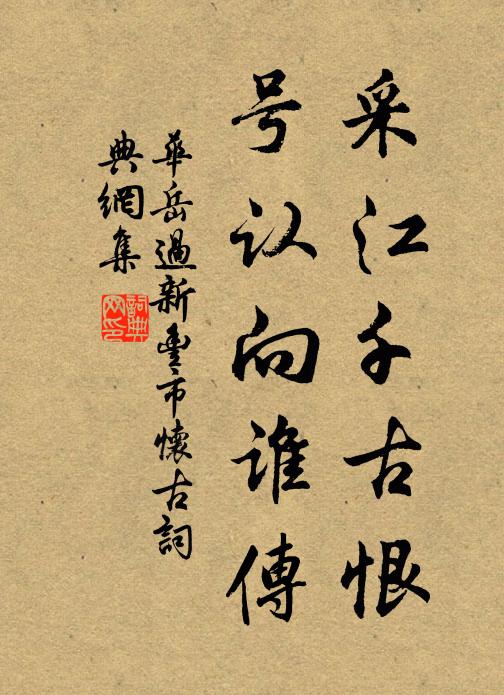 采江千古恨
号认向谁傳
華岳過新豊市懷古詞
典網集
詞典
网印